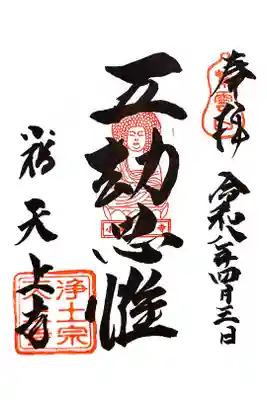 奉拝
令和八年四月三日
五劫思惟
天上寺
浄土宗